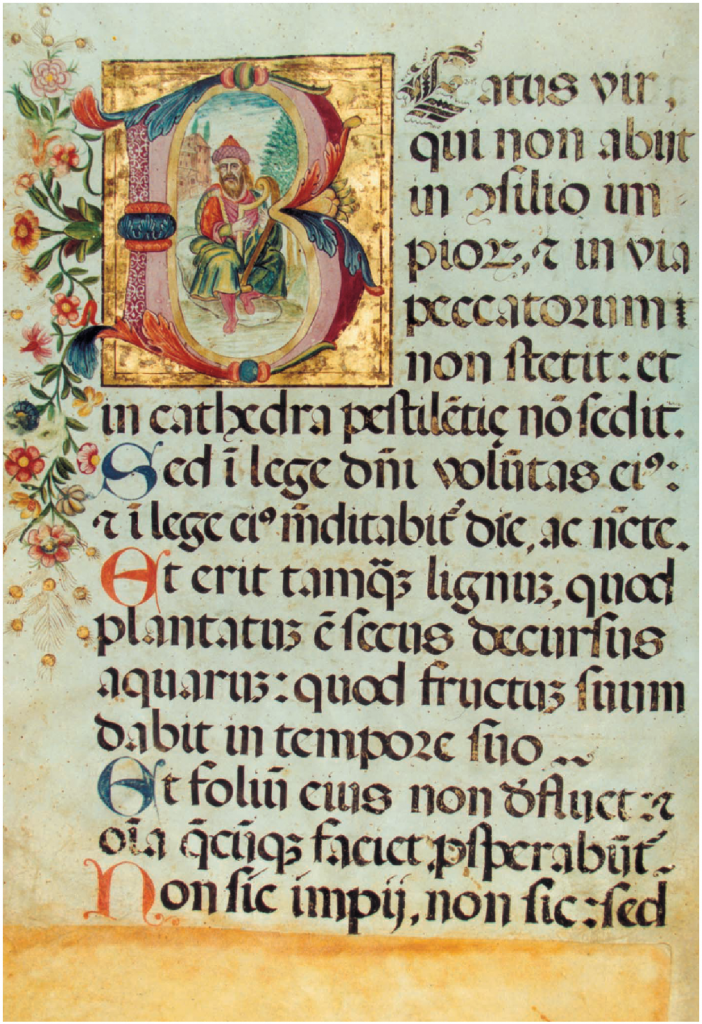 BEatus vir,
qui non abijt
in ꝯsilio im
pioꝝ, ⁊ in via
peccatorum
non stetit: et
in cathedra pestilētię nō sedit.
Sed ī lege dn̄i volūtas eiꝰ:
⁊ ī lege eiꝰ m̄ditabit᷑ die, ac n̄cte.
Et erit tamq̄ꝫ lignuꝫ, quod
plantatuꝫ ē secus decursus
aquaruꝫ: quod fructuꝫ suum
dabit in tempore suo
Et foliū eius non d̄fluet: ⁊
oīa q̄cūqꝫ faciet ꝓsperabūt᷑.
Non sic impij, non sic: sed